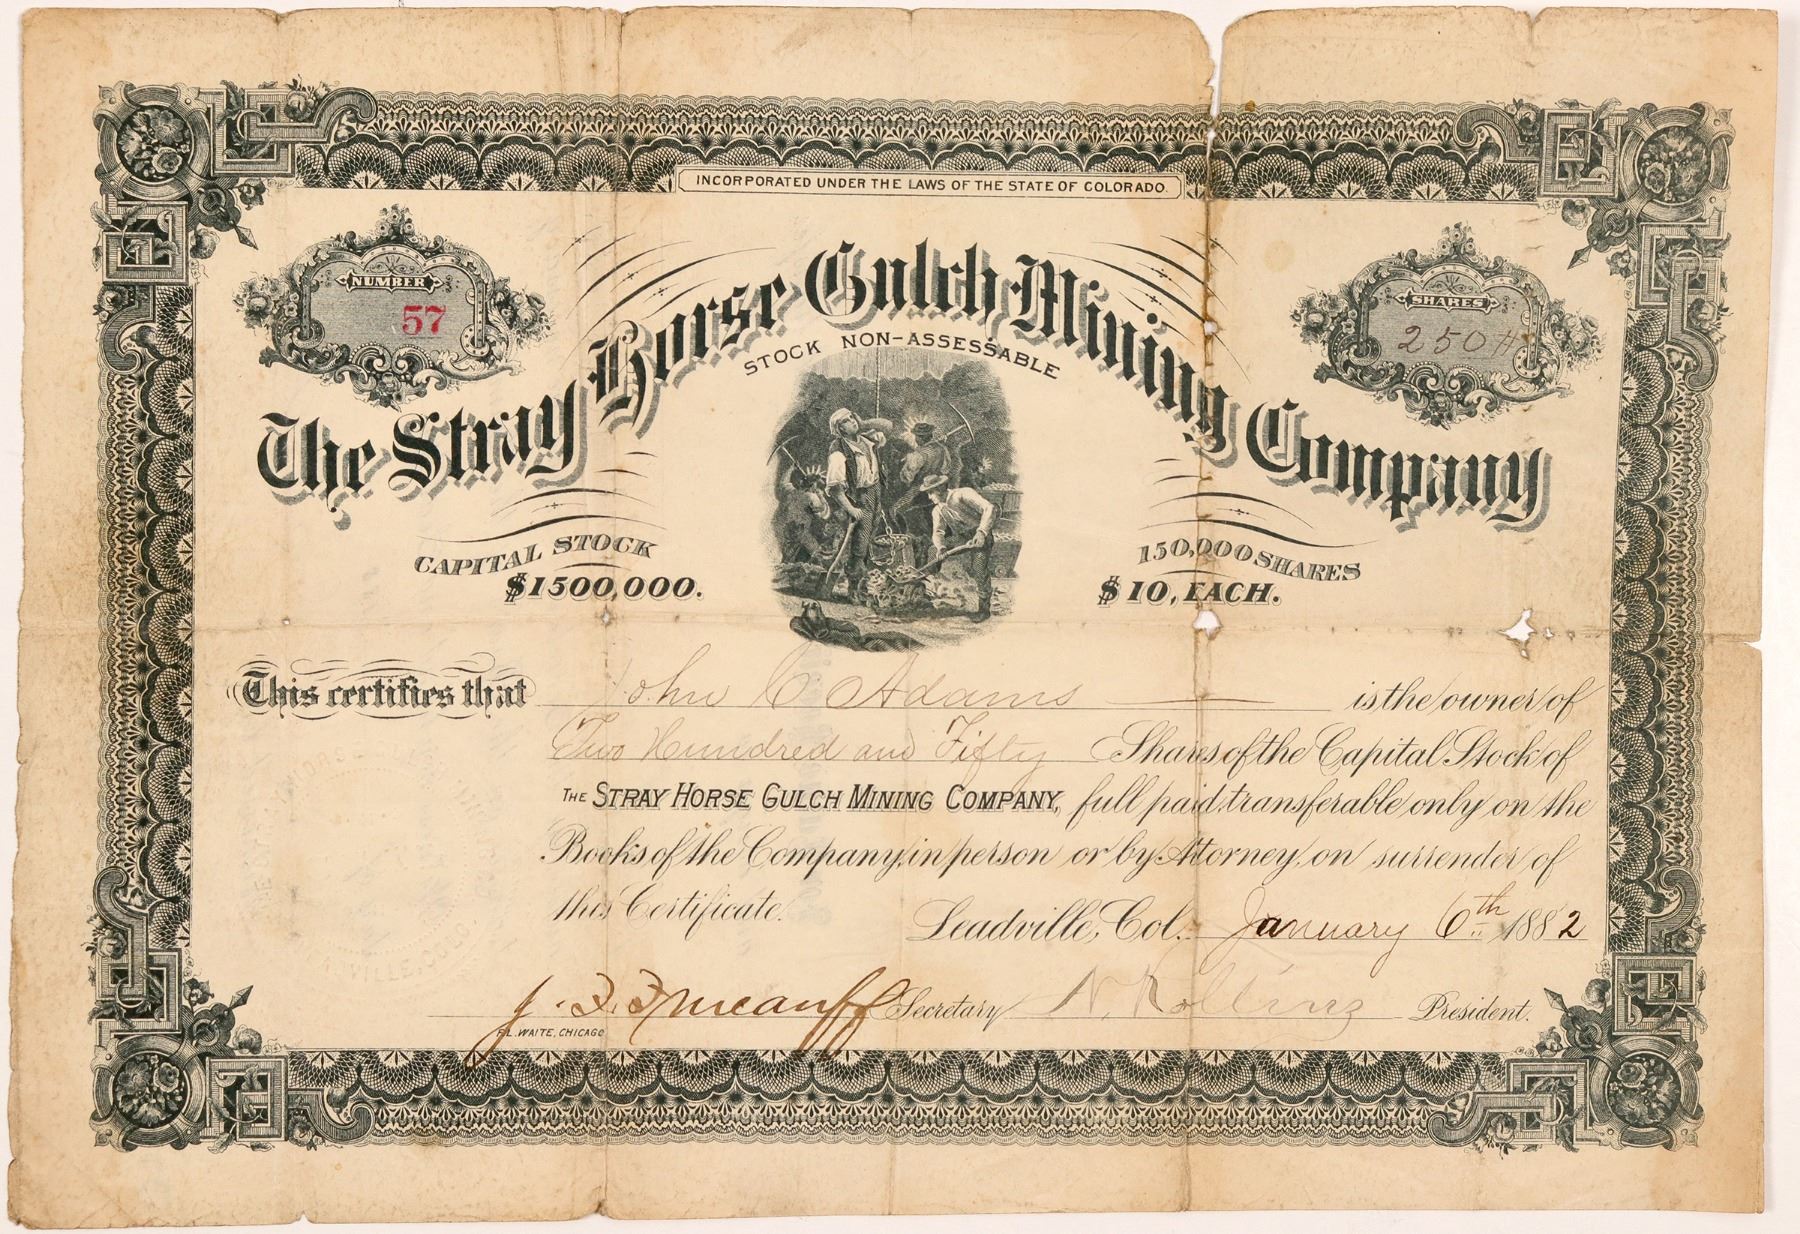 INCORPORATED UNDER THE LAWS OF THE STATE OF COLORADO.
NUMBER
57
SHARES
250
The Stray Horse Gulch Mining Company
STOCK NON-ASSESSABLE
CAPITAL STOCK
$1500,000.
150,000 SHARES
$10, EACH.
This certifies that John C. Adams is the owner of
Two Hundred and Fifty Shares of the Capital Stock of
THE STRAY HORSE GULCH MINING COMPANY, full paid, transferable only on the
Books of the Company, in person or by Attorney, on surrender of
this Certificate.
Leadville, Col. January 6th 1882
Secretary N. Rollins President.
F.L. WAITE, CHICAGO
VILLE, COLO.